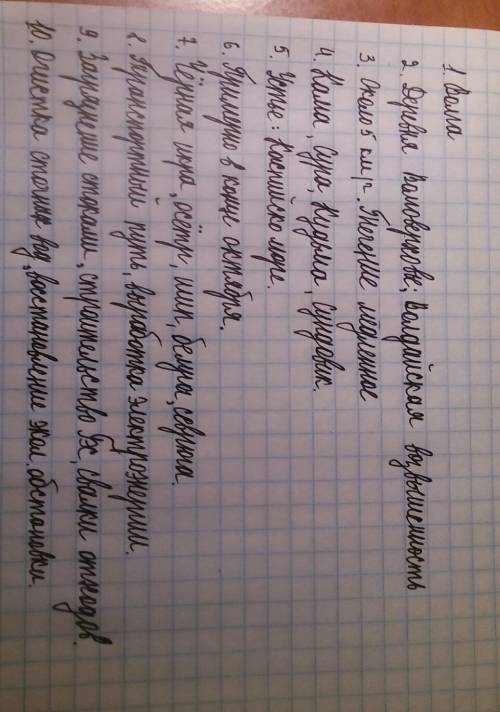 1. Волга
2. Деревня Волговерховье, Валдайская возвышенность
3. Около 5 км/ч. Течение медленное
4. Кама, Сура, Кудьма, Сундовик.
5. Устье: Каспийско море.
6. Примерно в конце октября.
7. Чёрная икра, осётр, шип, белуга, севрюга.
8. Транспортный путь, выработка электроэнергии.
9. Загрязнение стоками, строительство ГЭС, свалки отходов.
10. Очистка сточных вод, востановление экол. обстановки.